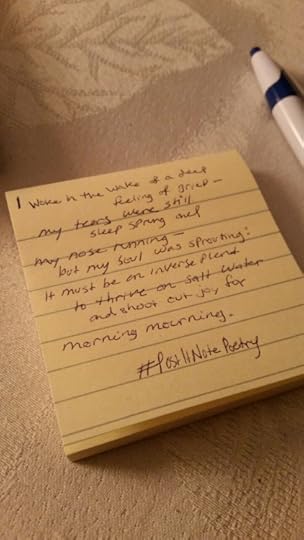 I woke in the wake of a deep
feeling of grief —
my tears were still
sleep sprung and
my nose running —
but my soul was sprouting:
It must be an inverse plant
to thrive on salt water
and shoot out joy for
morning mourning.
#PostItNotePoetry